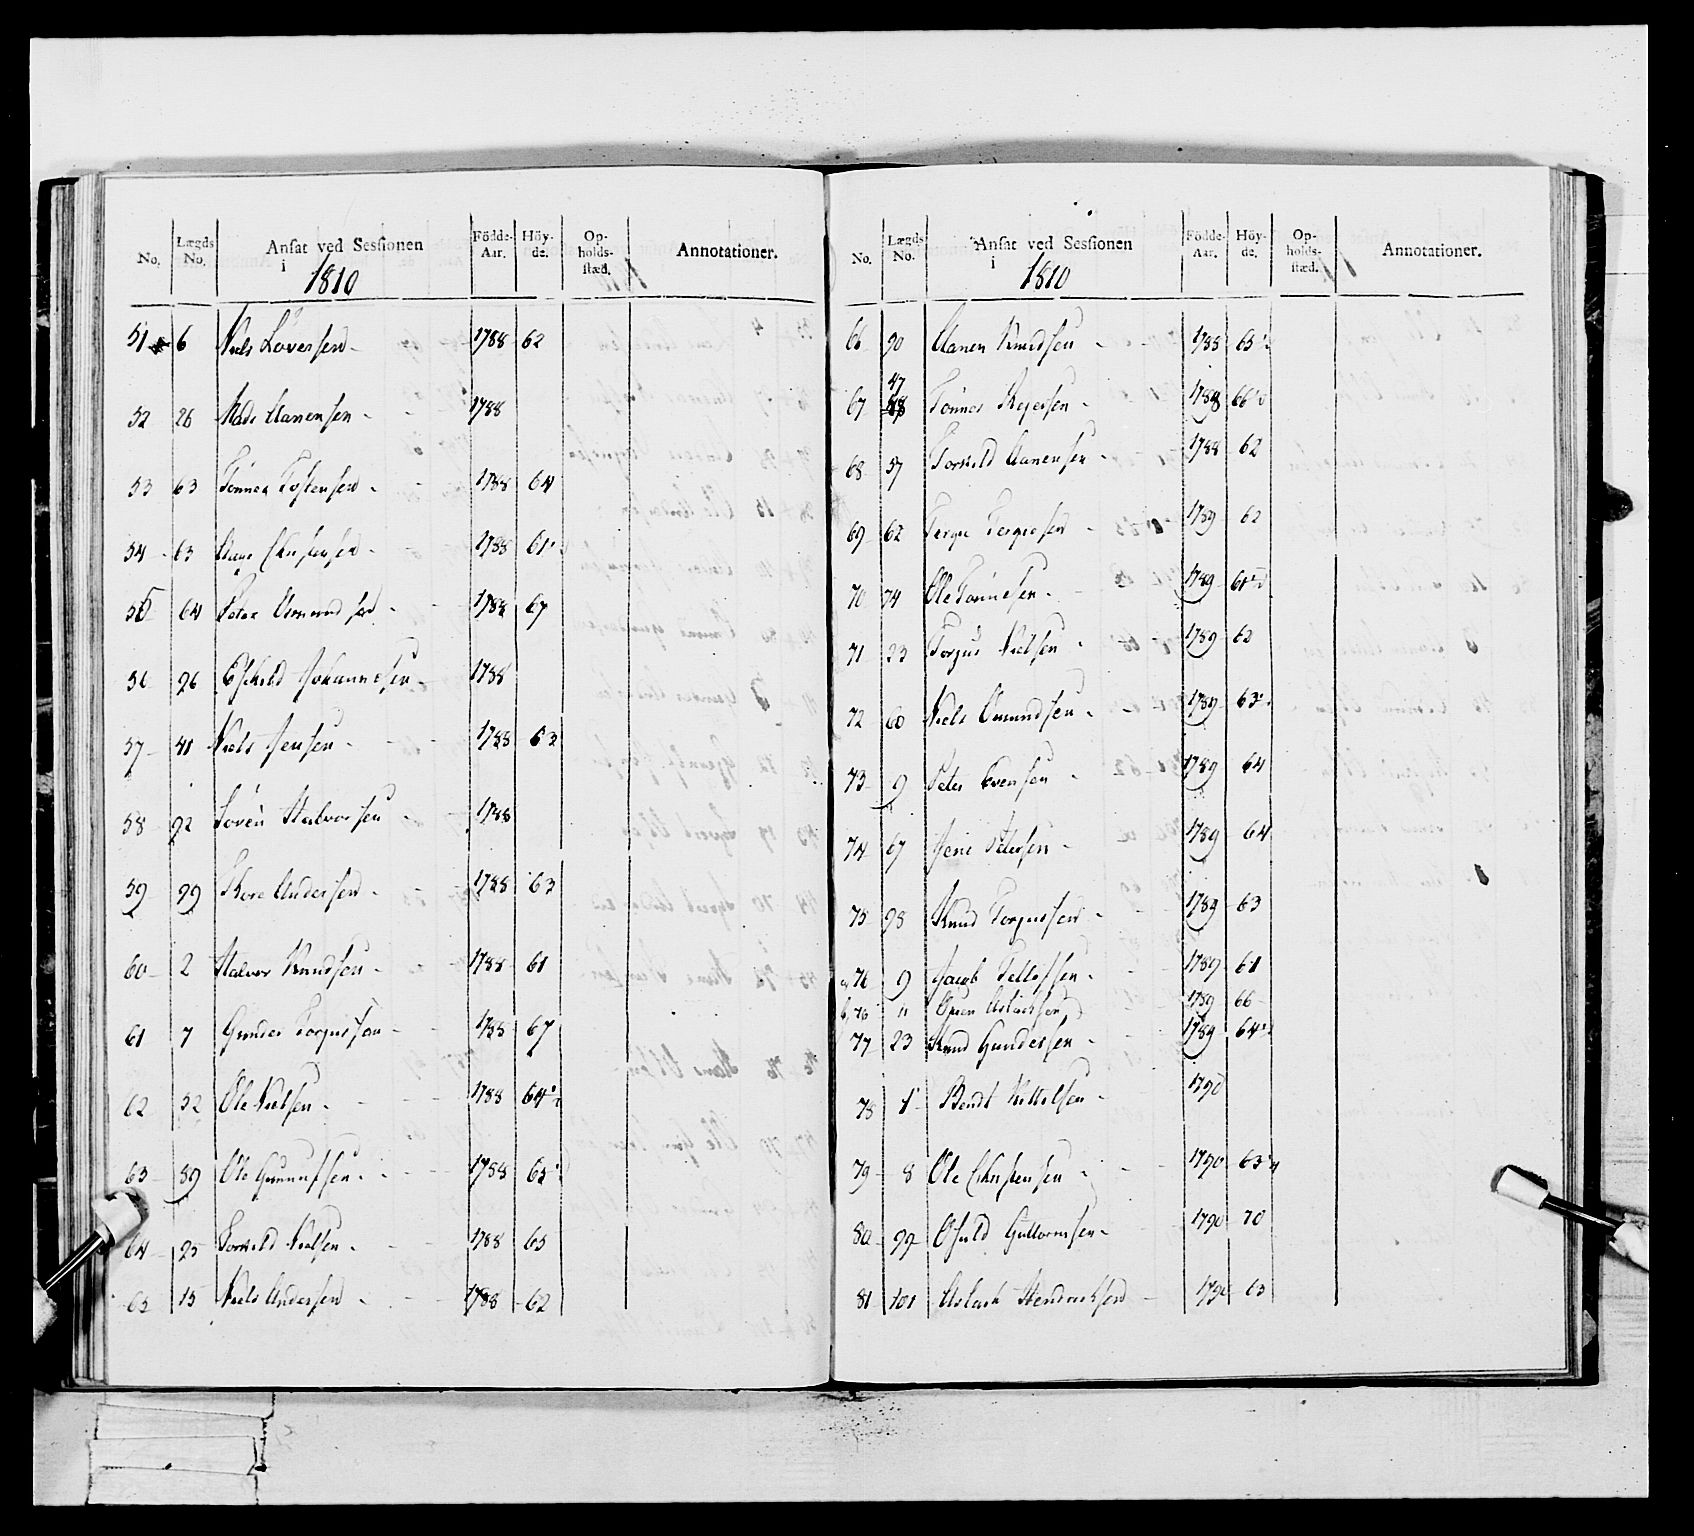 No. Lægds No. Ansat ved Sessionen i 1810 Födde-Aar. Höy-de. Op-holds-stæd. Annotationer.
51 6 Niels Loversen 1788 62
52 26 Mads Aanensen 1788
53 63 Tönnes Tostensen 1788 64
54 63 1788 61
55 64 Peter Osmundsen 1788 67
56 96 Eskild Johannesen 1788
57 41 Niels Jensen 1788 63
58 92 Sören Halvorsen 1788
59 99 Tore Andersen 1788 63
60 2 Halvor Knudsen 1788 61
61 7 Gunder Torgussen 1788 67
62 32 Ole Nielsen 1788 64½
63 89 Ole Gunnufsen 1788
64 95 Torkild Nielsen 1788 65
65 15 Niels Andersen 1788 62
No. Lægds No. Ansat ved Sessionen i 1810 Födde-Aar. Höy-de. Op-holds-stæd. Annotationer.
66 90 Aanen Knudsen 1788
67 47 Tönnes 66½
68 57 Torkild Aanensen 1788 62
69 62 Tergu Terguesen 1789 62
70 74 Ole Tönnesen 1789 61½
71 23 Torgus Nielsen 1789 62
72 60 Niels Osmundsen 1789 63
73 9 Peter Evensen 1789 64
74 67 Jens Petersen 1789 64
75 98 Knud Torgussen 1789 63
a, 76 9 Jacob Tellefsen 1789 61
b, 76 " Aslaksen 1789 66
77 23 Knud Gundersen 1789 64½
78 1 Bendt Kittelsen 1790
79 8 Ole Christensen 1790 63¼
80 99 Osuld Guttormsen 1790 70
81 101 Aslack Hendricksen 1790 63